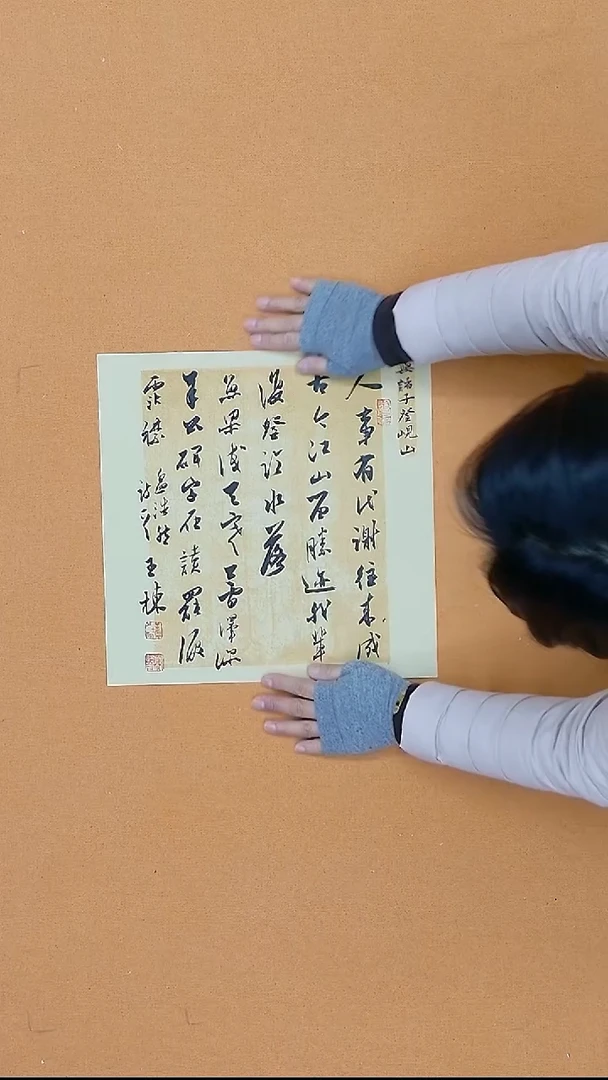 與諸子登峴山
人事有代謝往来成
古今江山留勝迹我輩
復登臨水落
魚梁淺天寒夢澤深
羊公碑字在讀罷淚
霑襟
孟浩然
詩一首
王棟